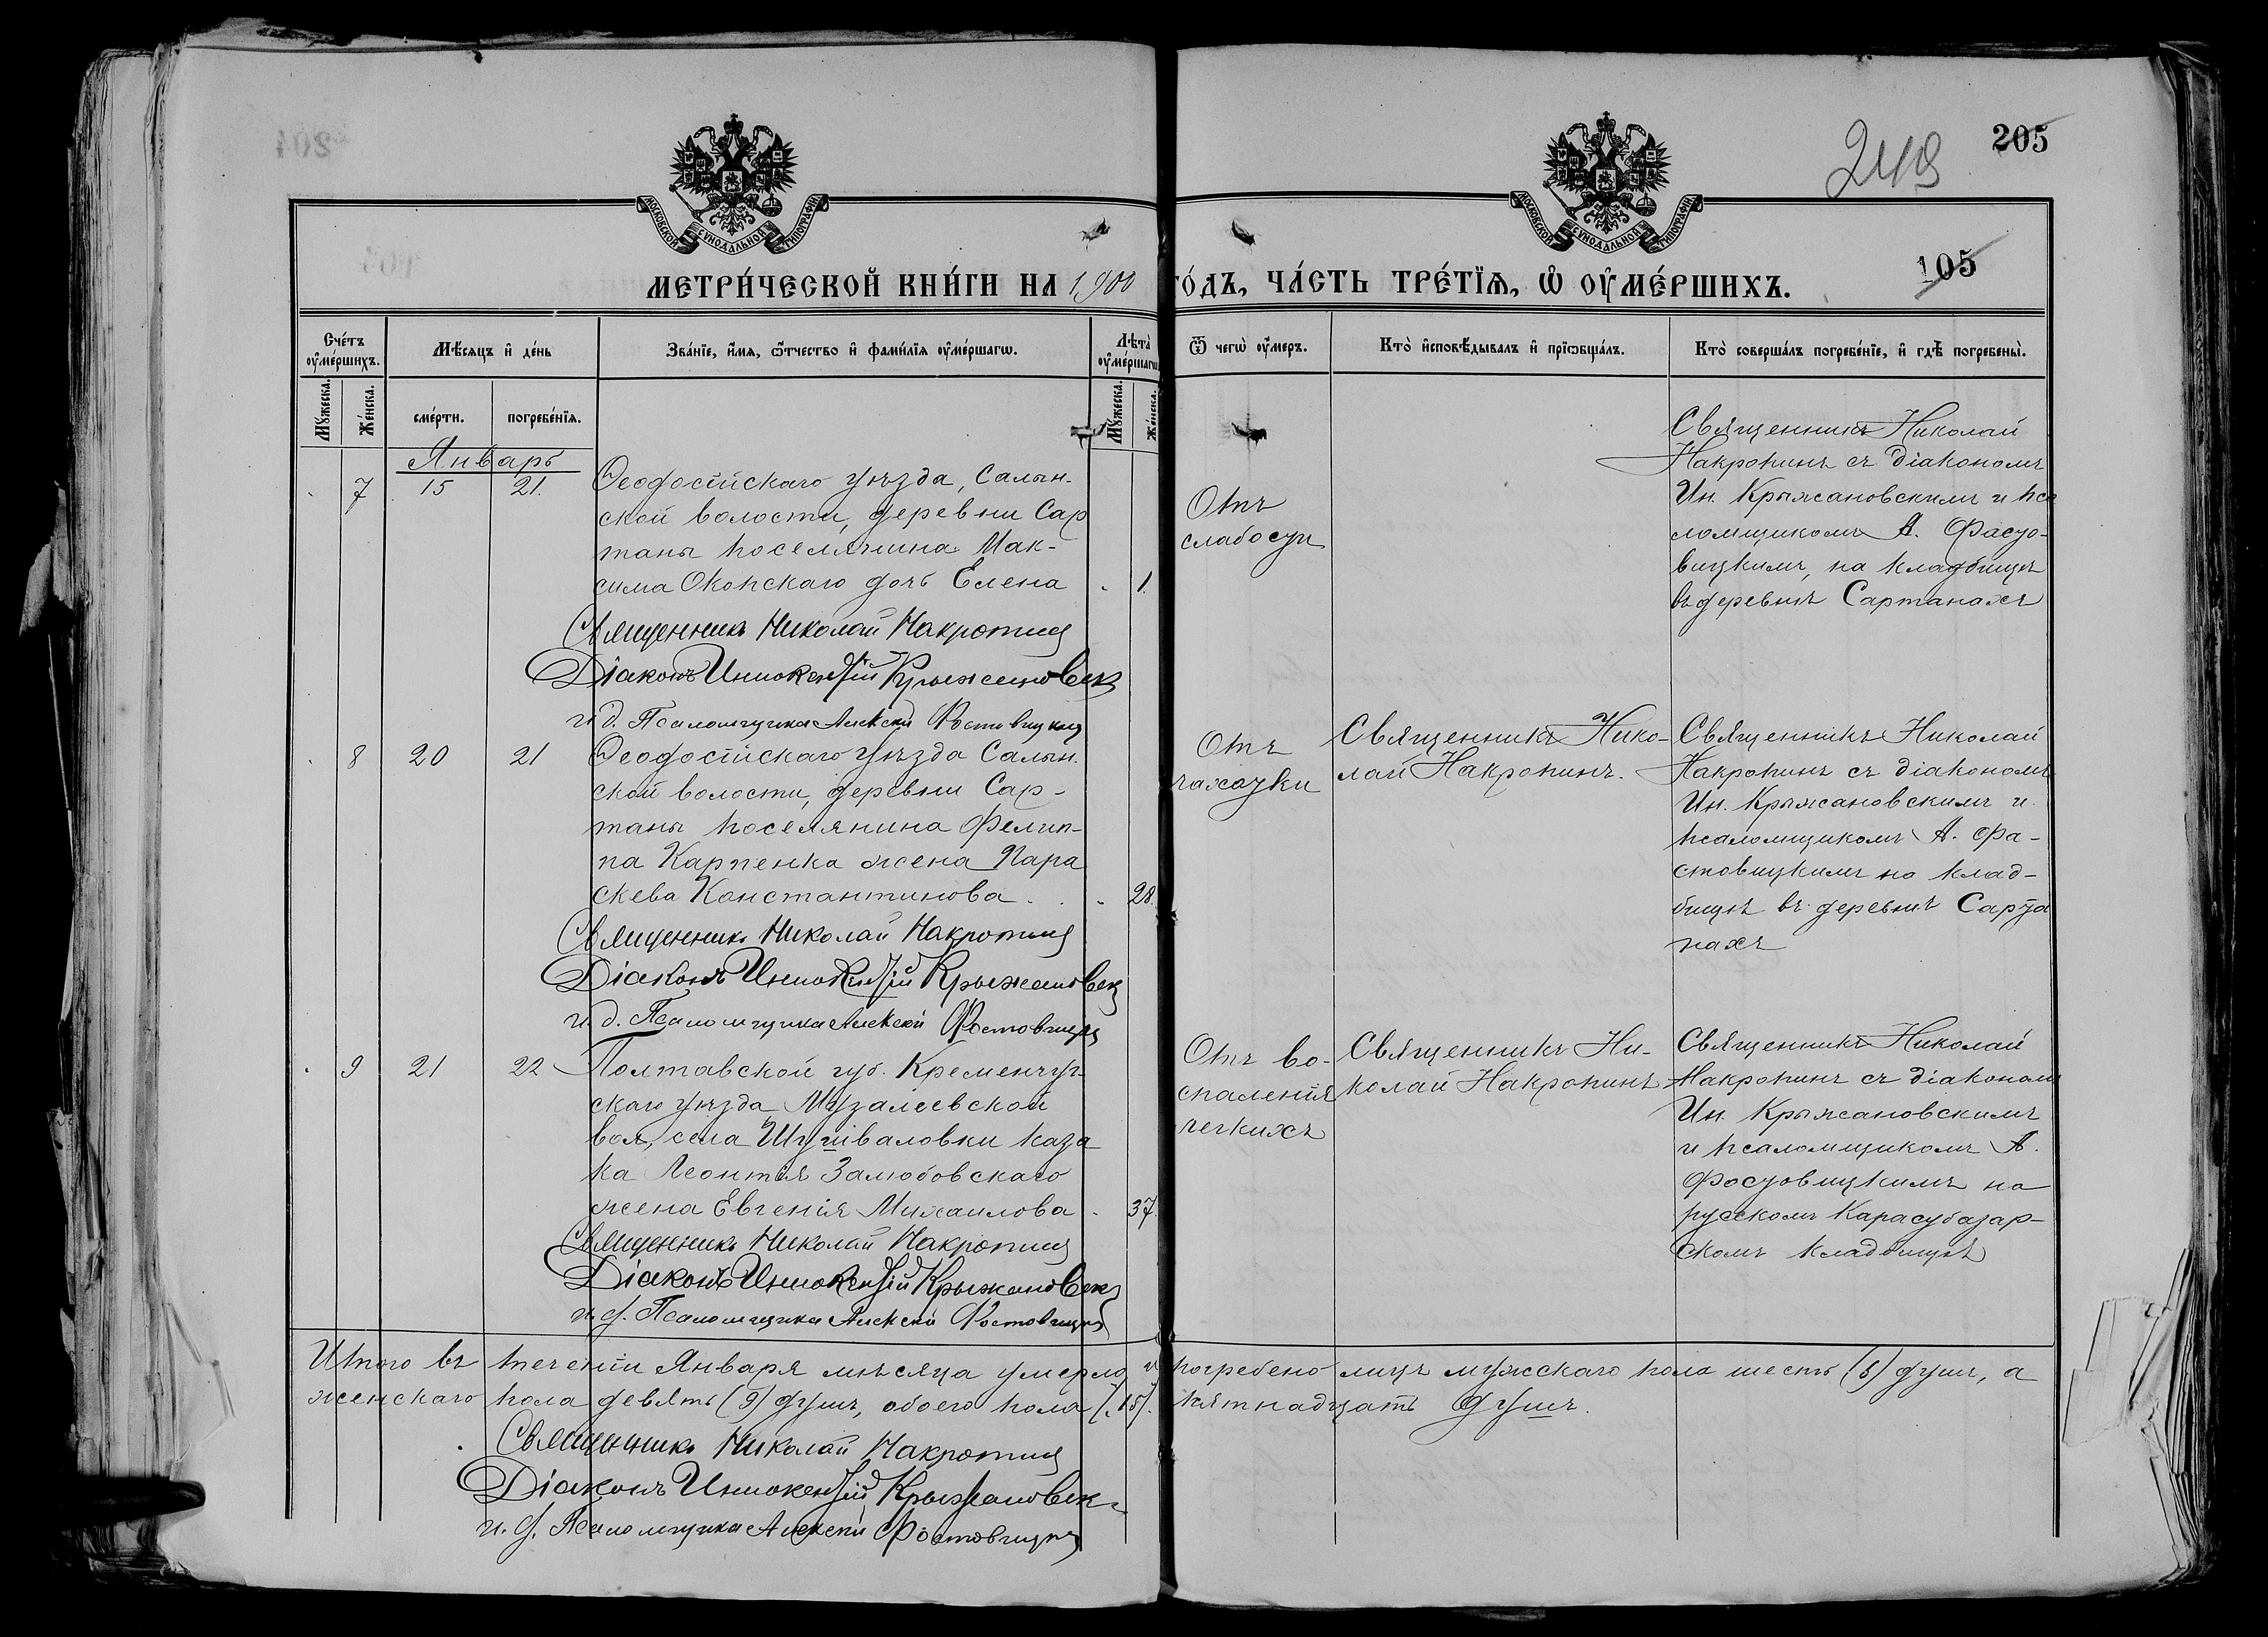 205
249
105
МОСКОВСКОЙ СѴНОДАЛЬНОЙ ТИПОГРАФІИ
МОСКОВСКОЙ СѴНОДАЛЬНОЙ ТИПОГРАФІИ
МЕТРИ́ЧЕСКОЙ КНИ́ГИ НА 1900 ГО́ДЪ, ЧА́СТЬ ТРЕ́ТЇѦ, Ѽ ОУ҆МЕ́РШИХЪ.
Сче́тъ оу҆ме́ршихъ.
Мѣ́сяцъ и҆ де́нь
Зва́нїе, и҆́мѧ, ѻ҆́тчество и҆ фами́лїѧ оу҆ме́ршагѡ.
Лѣта̀ оу҆ме́ршагѡ
Ѿ чегѡ̀ оу҆́меръ.
Кто̀ и҆сповѣ́дывалъ и҆ прїѡбща́лъ.
Кто̀ соверша́лъ погребе́нїе, и҆ гдѣ̀ погребены̀.
Мꙋ́жеска.
Же́нска.
сме́рти.
погребе́нїѧ.
Мꙋ́жеска.
Же́нска.
Январь
7 15 21.
Ѳеодосійскаго уѣзда, Салын-
ской волости, деревни Сар
таны поселянина Мак-
сима Оконскаго дочь Елена 1.
Отъ
слабости
Священникъ Николай
Накропинъ съ діакономъ
Ин. Крыжановскимъ и пса
ломщикомъ А. Фасто-
вицкимъ, на кладбищѣ
въ деревнѣ Сартанахъ
Священникъ Николай Накропин
Діаконъ Инокентій Крыжановск
и. д. Псаломщика Алексѣй Фостовицкій
8 20 21
Ѳеодосійскаго уѣзда Салын.
ской волости, деревни Сар-
таны поселянина Филип-
па Карпенка жена Пара
скева Константинова 28.
Отъ
чахотки
Священникъ Нико-
лай Накропинъ.
Священникъ Николай
Накропинъ съ діакономъ
Ин. Крыжановскимъ и
псаломщикомъ А. Фа-
стовицкимъ на клад-
бищѣ въ деревнѣ Сарта
нахъ
Священникъ Николай Накропин
Діаконъ Инокентій Крыжановск
и. д. Псаломщика Алексѣй Фостовицкій
9 21 22
Полтавской губ. Кременчуг-
скаго уѣзда
вол., села Шушваловки каза
ка Леонтія Залюбовскаго
жена Евгенія Михаилова 37.
Отъ во-
спаленія
легкихъ
Священникъ Ни-
колай Накропинъ
Священникъ Николай
Накропинъ съ діаконом
Ин. Крыжановскимъ
и псаломщикомъ А.
Фостовицкимъ на
русскомъ Карасубазар-
скомъ кладбищѣ
Священникъ Николай Накропин
Діаконъ Инокентій Крыжановск
и. д. Псаломщика Алексѣй Фостовицкій
Итого въ теченіи Января мѣсяца умерло и погребено лицъ мужскаго пола шесть (6) душъ, а
женскаго пола девять (9) душъ, обоего пола (15). пятнадцать душъ.
Священникъ Николай Накропин
Діаконъ Инокентій Крыжановск
и. д. Псаломщика Алексѣй Фостовицкій